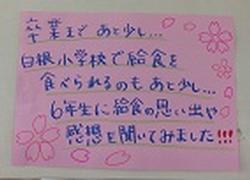 卒業まで あと少し...
白根小学校で給食を
食べられるのも あと少し...
6年生に給食の思い出や
感想を聞いてみました!!!